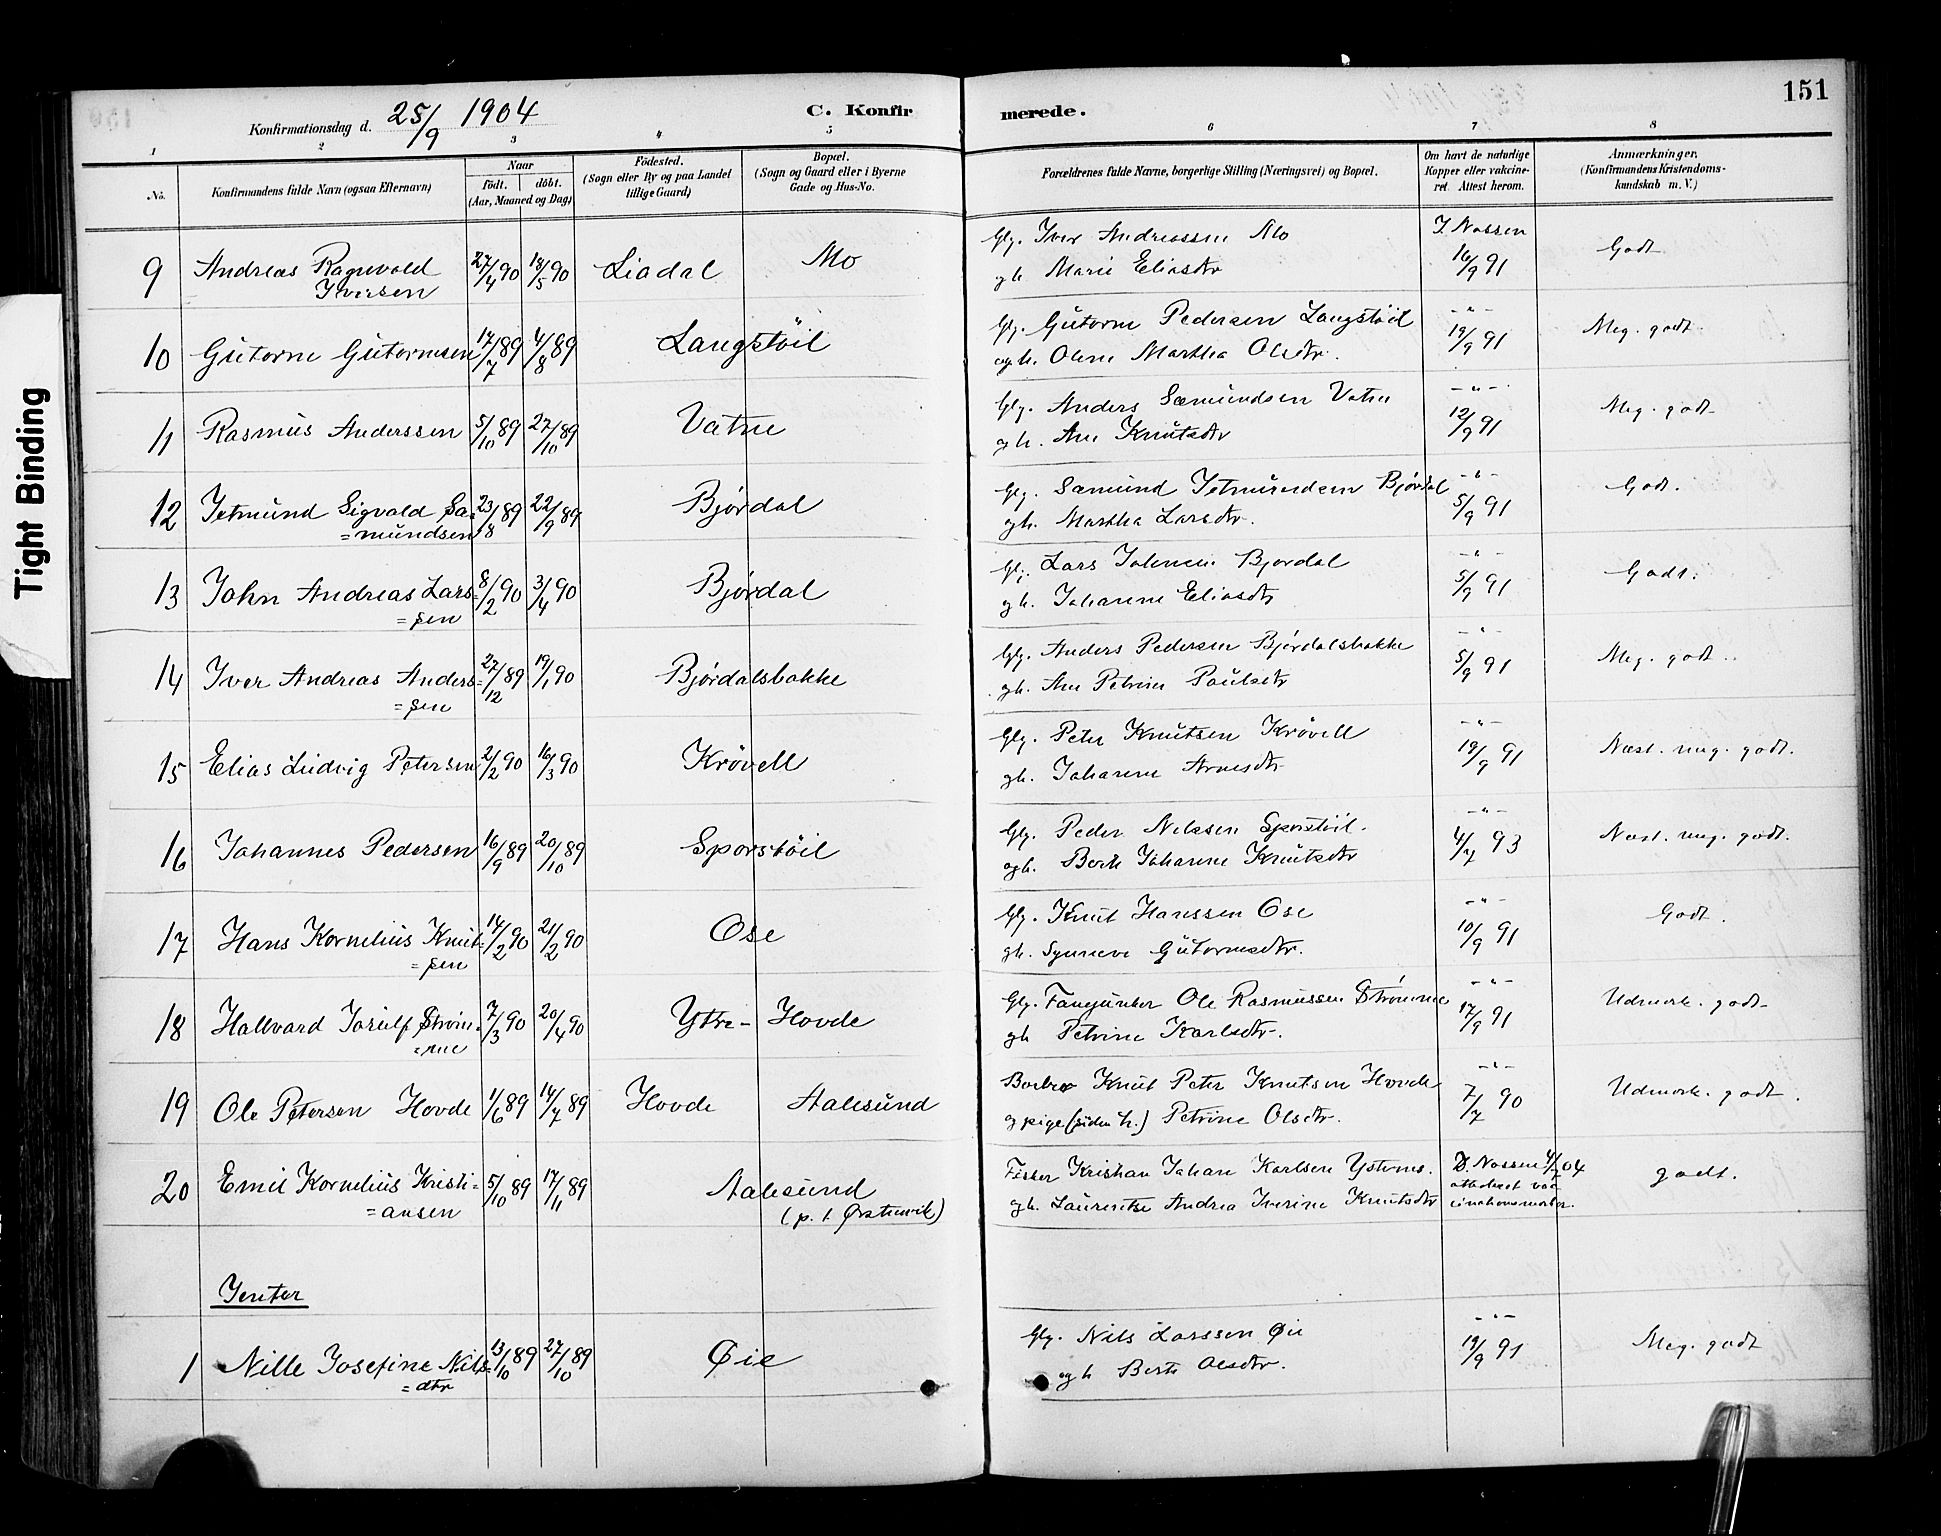 Tight Binding
151
Konfirmationsdag d. 25/9 1904
C. Konfirmerede.
1 2 3 4 5 6 7 8
No.
Konfirmandens fulde Navn (ogsaa Efternavn)
Naar
født. døbt.
(Aar, Maaned og Dag)
Födested.
(Sogn eller By og paa Landet
tillige Gaard)
Bopæl.
(Sogn og Gaard eller i Byerne
Gade og Hus-No.
Forældrenes fulde Navne, borgerlige Stilling (Næringsvei) og Bopæl.
Om havt de naturlige
Kopper eller vakcine-
ret. Attest herom.
Anmærkninger.
(Konfirmandens Kristendoms-
kundskab m. V.)
9 Andreas Ragnvald 27/4 90 18/5 90 Liadal Mo Glg. Iver Andreassen Mo J. Nossen 16/9 91 Godt
Iversen gh. Marie Eliasdtr
10 Gutorm Gutormsen 17/7 89 4/8 89 Langstöil Glg. Gutorm Pedersen Langstöil -"- 19/9 91 Meg. godt.
og h. Oline Martha Olsdtr.
11 Rasmus Anderssen 5/10 89 27/10 89 Vatne Glg. Anders Sæmundsen Vatne -"- 12/9 91 Meg. godt
gh. Ane Knutsdtr
12 Jetmund Sigvald Sa= 23/8 89 22/9 89 Bjørdal Glg. Samund Jetmundsen Bjørdal -"- 5/9 91 Godt.
=mundsen gh. Martha Larsdtr.
13 John Andreas Lars= 8/2 90 3/4 90 Bjørdal Glg. Lars Johnsen Bjørdal -"- 5/9 91 Godt.
=sen gh. Johanne Eliasdtr
14 Iver Andreas Anders= 27/12 89 19/1 90 Bjørdalsbakke Glg. Anders Pedersen Bjørdalsbakke -"- 5/9 91 Meg. godt.
=sen gh. Ane Petrine Paulsdtr
15 Elias Ludvig Petersen 2/2 90 16/3 90 Krøvell Glg. Peter Knutsen Krøvell -"- 19/9 91 Næst. meg. godt.
gh. Johanne Arnesdtr
16 Johannes Pedersen 16/9 89 20/10 89 Sporstöil Glg. Peder Nilssen Sporstöil. -"- 4/7 93 Næst. meg. godt.
og h. Johanne Knutsdtr
17 Hans Kornelius Knut= 14/2 90 21/2 90 Ose Glg. Knut Hanssen Ose -"- 10/9 91 Godt.
=sen gh. Synneve Gutormsdtr.
18 Hallvard Jorulf Strøm= 7/3 90 20/4 90 Ytre-Hovde Glg. Fanejunker Ole Rasmussen Strømme -"- 17/9 91 Udmerk. godt
=me gh Petrine Karlsdtr.
19 Ole Petersen Hovde 1/6 89 14/7 89 Hovde Aalesund Knut Peter Knutsen Hovde -"- 7/7 90 Udmerk. godt.
og pige (siden h.) Petrine Olsdtr.
20 Emil Kornelius Kristi= 5/10 89 17/11 89 Aalesund Fisker Kristian Johan Karlsen Ystenes. D. Nossen 4/7 04 godt.
=ansen (p. t. Ørstenvik) gh. Laurentse Andrea Iverine Knutsdtr
Jenter
1 Nille Josefine Nils= 13/10 89 27/10 89 Øie Glg. Nils Larssen Øie -"- 19/9 91 Meg. godt
=dtr og h Berte Olsdtr.